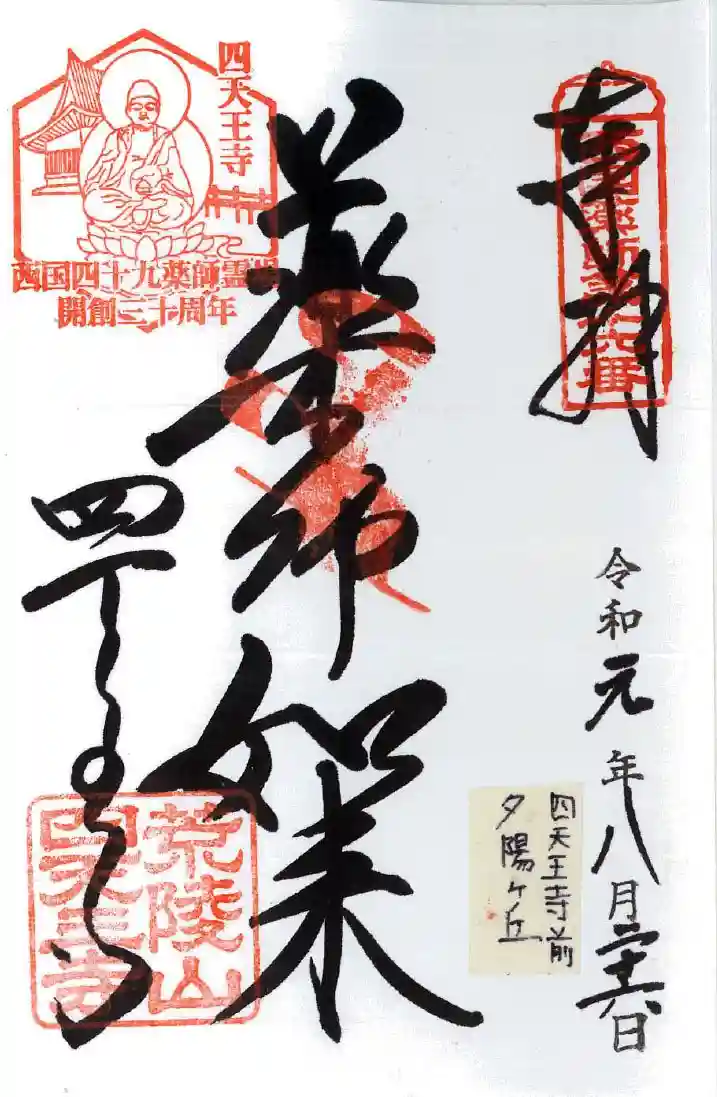 奉拝
西国薬師第十六番
令和元年八月二十六日
四天王寺前
夕陽ヶ丘
薬師如来
四天王寺
四天王寺
西国四十九薬師霊場
開創三十周年
荒陵山
四天王寺